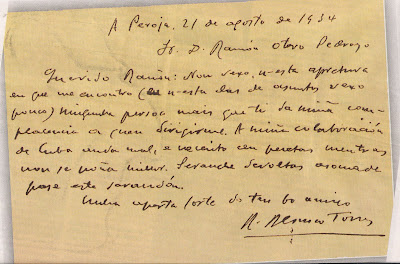 A Peroja, 21 de agosto de 1934
Sr. D. Ramón Otero Pedrayo
Querido Ramón: Non vexo, n-esta apretura
en que me encontro (e n-esta das de asuntos vexo
pouco) ningunha persoa mais que ti da miña com-
placencia a quen dirigirme. A miña colaboración
de Cuba anda mal, e necesito cen pesetas mentras
non se poña millor.
pase este
Unha aperta forte do teu bo amigo